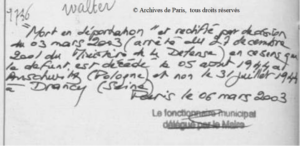 © Archives de Paris, tous droits réservés
1736
Walter
"Mort en déportation" et rectifié par décision
du 03 mars 2003 (arrêté du 21 décembre
2001 du Ministère de la Défense) en ce sens que
le défunt est décédé le 05 août 1944 à
Auschwitz (Pologne) et non le 31 juillet 1944
à Drancy (Seine)
Paris le 06 mars 2003
Le fonctionnaire municipal
délégué par le Maire